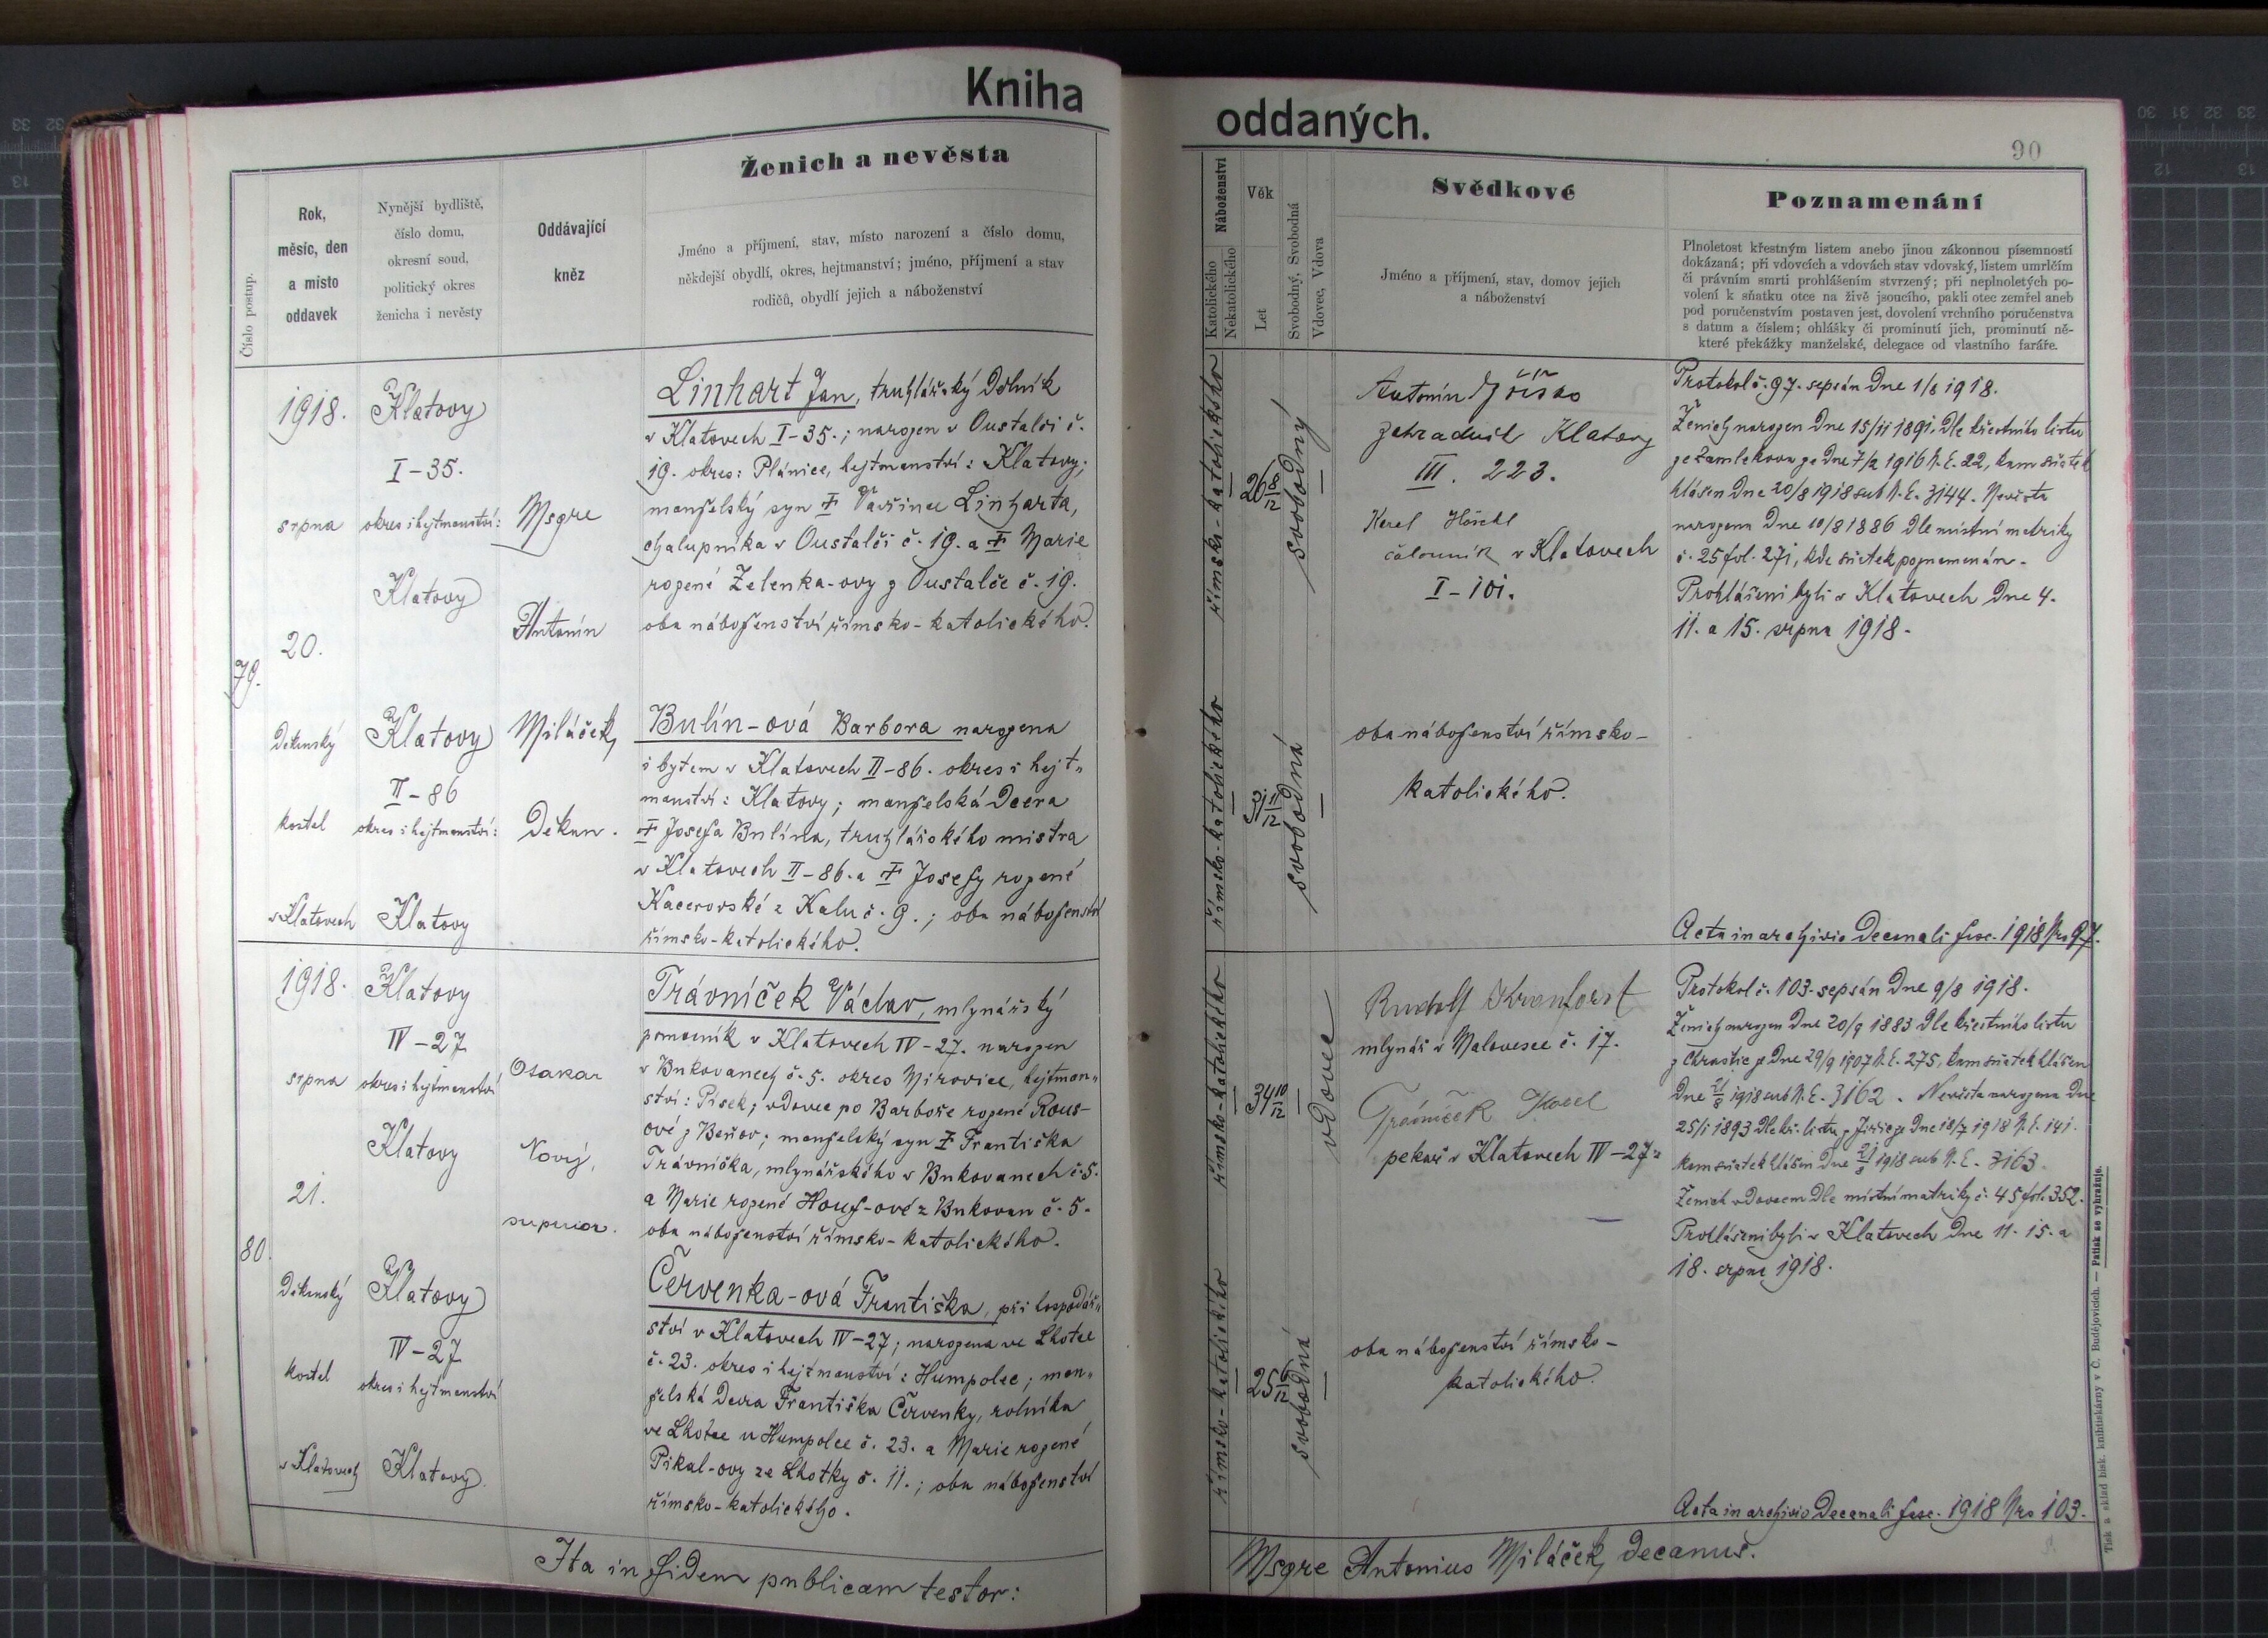 Kniha
oddaných.
90
Číslo postup.
Rok,
měsíc, den
a místo
oddavek
Nynější bydliště,
číslo domu,
okresní soud,
politický okres
ženicha i nevěsty
Oddávající
kněz
Ženich a nevěsta
Jméno a příjmení, stav, místo narození a číslo domu,
někdejší obydlí, okres, hejtmanství; jméno, příjmení a stav
rodičů, obydlí jejich a náboženství
Náboženství
Katolického
Nekatolického
Věk
Let
Svobodný, Svobodná
Vdovec, Vdova
Svědkové
Jméno a příjmení, stav, domov jejich
a náboženství
Poznamenání
Plnoletost křestným listem anebo jinou zákonnou písemností
dokázaná; při vdovcích a vdovách stav vdovský, listem umrlčím
či právním smrti prohlášením stvrzený; při neplnoletých po-
volení k sňatku otce na živě jsoucího, pakli otec zemřel aneb
pod poručenstvím postaven jest, dovolení vrchního poručenstva
s datum a číslem; ohlášky či prominutí jich, prominutí ně-
které překážky manželské, delegace od vlastního faráře.
79.
1918.
srpna
20.
Děkanský
kostel
v Klatovech
Klatovy
I-35.
okres i hejtmanství:
Klatovy
Klatovy
II-86
okres i hejtmanství:
Klatovy
Msgre
Antonín
Miláček,
Děkan.
Linhart Jan, truhlářský dělník
v Klatovech I-35.; narozen v Oustalči č.
19. okres: Plánice, hejtmanství: Klatovy;
manželský syn † Vavřince Linharta,
chalupníka v Oustalči č. 19. a † Marie
rozené Zelenka-ovy z Oustalče č. 19.
oba náboženství římsko-katolického.
Bulín-ová Barbora narozena
i bytem v Klatovech II-86. okres i hejt-
manství: Klatovy; manželská dcera
† Josefa Bulína, truhlářského mistra
v Klatovech II-86. a † Josefy rozené
Kacerovské z Kalu č. 9.; oba náboženství
římsko-katolického.
římsko-katolického
26 8/12
svobodný
římsko-katolického
31 11/12
svobodná
Antonín
zahradník Klatovy
III. 223.
Karel
čalouník v Klatovech
I-101.
oba náboženství římsko-
katolického.
Protokol č. 97. sepsán dne 1/8 1918.
Ženich narozen dne 15/11 1891. dle křestního listu
ze Zamlekova ze dne 7/2 1916 N.E. 22, kam sňatek
hlášen dne 20/8 1918 sub N.E. 3144. Nevěsta
narozena dne 10/8 1886 dle místní matriky
č. 25 fol. 271, kde sňatek poznamenán.
Prohlášeni byli v Klatovech dne 4.
11. a 15. srpna 1918.
Acta in archivio Decanali fasc. 1918 Nro 97.
80.
1918.
srpna
21.
Děkanský
kostel
v Klatovech
Klatovy
IV-27
okres i hejtmanství
Klatovy
Klatovy
IV-27
okres i hejtmanství
Klatovy.
Otakar
Nový,
superior.
Trávníček Václav, mlynářský
pomocník v Klatovech IV-27. narozen
v Bukovanech č. 5. okres Mirovice, hejtman-
ství: Písek; vdovec po Barboře rozené Rous-
ové z Beňov; manželský syn † Františka
Trávníčka, mlynářského v Bukovanech č. 5.
a Marie rozené Houf-ové z Bukovan č. 5.
oba náboženství římsko-katolického.
Červenka-ová Františka, při hospodář-
ství v Klatovech IV-27; narozena ve Lhotce
č. 23. okres i hejtmanství: Humpolec; man-
želská dcera Františka Červenky, rolníka
ve Lhotce u Humpolce č. 23. a Marie rozené
Pikal-ovy ze Lhotky č. 11.; oba náboženství
římsko-katolického.
římsko-katolického
34 10/12
vdovec
římsko-katolického
25 6/12
svobodná
Rudolf
mlynář v Malovesce č. 17.
Trávníček Karel
pekař v Klatovech IV-27.
oba náboženství římsko-
katolického.
Protokol č. 103. sepsán dne 9/8 1918.
Ženich narozen dne 20/9 1883 dle křestního listu
z Chraštic ze dne 29/9 1907 N.E. 275, kam sňatek hlášen
dne 21/8 1918 sub N.E. 3162. Nevěsta narozena dne
25/1 1893 dle kř. listu z Jiřic ze dne 18/7 1918 N.E. 141.
kam sňatek hlášen dne 21/8 1918 sub N.E. 3163.
Ženich vdovcem dle místní matriky č. 45 fol. 352.
Prohlášeni byli v Klatovech dne 11. 15. a
18. srpna 1918.
Acta in archivio Decanali fasc. 1918 Nro 103.
Ita in fidem publicam testor:
Msgre Antonius Miláček, decanus.
Tisk a sklad bisk. knihtiskárny v Č. Budějovicích. — Patisk se vyhražuje.